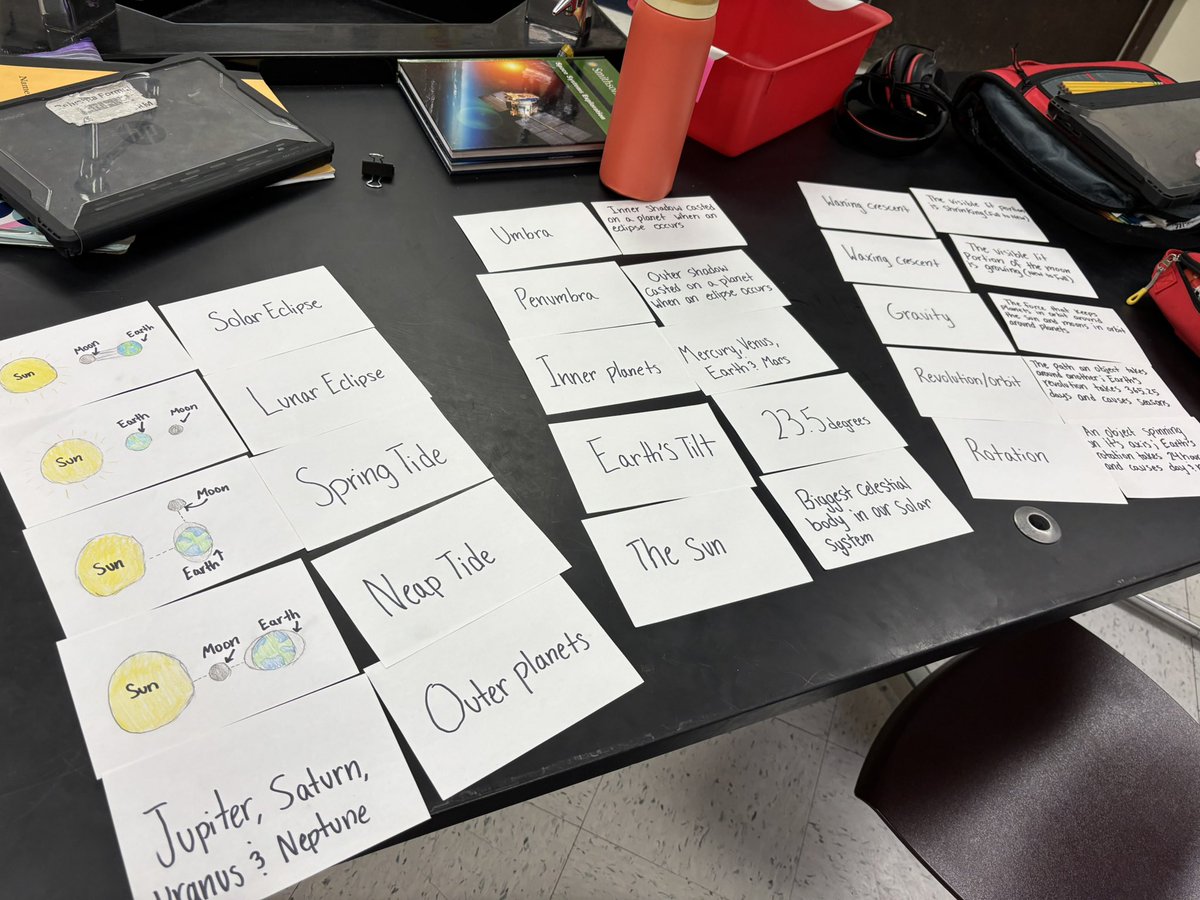 Solar Eclipse
Moon
Earth
Sun
Lunar Eclipse
Earth
Moon
Sun
Spring Tide
Moon
Sun
Earth
Neap Tide
Moon
Earth
Sun
Outer planets
Jupiter, Saturn,
Uranus & Neptune
Umbra
Inner shadow casted
on a planet when an
eclipse occurs
Penumbra
Outer shadow
casted on a planet
when an eclipse occurs
Inner Planets
Mercury, Venus,
Earth & Mars
Earth's Tilt
23.5 degrees
The Sun
Biggest celestial
body in our solar
system
Waning crescent
The visible lit portion
is shrinking (Full to New)
Waxing crescent
The visible lit
Portion of the moon
is growing (new to Full)
Gravity
The Force that keeps
planets in orbit around
the sun and moons in orbit
around planets
Revolution/orbit
The path an object takes
around another; Earth's
revolution takes 365.25
days and causes seasons
Rotation
An object spinning
on it's axis; Earth's
rotation takes 24
and causes day
Space Systems Exploration
Smithso
Name